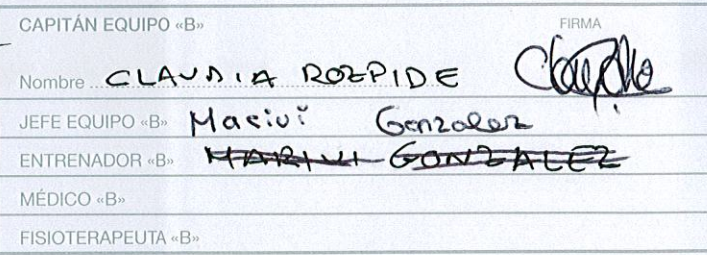 CAPITÁN EQUIPO «B» FIRMA
Nombre CLAUDIA ROZPIDE
JEFE EQUIPO «B» Marivi Gonzalez
ENTRENADOR «B» MARIVI GONZALEZ
MÉDICO «B»
FISIOTERAPEUTA «B»